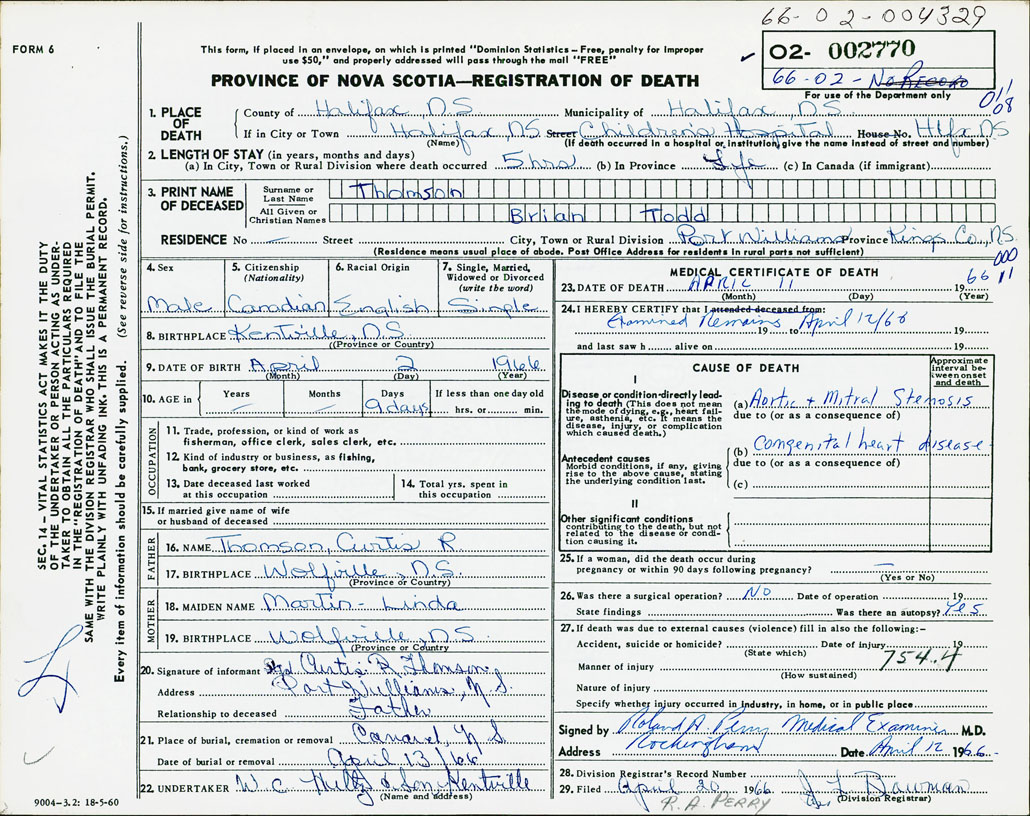 66-02-004329
FORM 6
This form, if placed in an envelope, on which is printed "Dominion Statistics—Free, penalty for improper
use $50," and properly addressed will pass through the mail "FREE"
PROVINCE OF NOVA SCOTIA—REGISTRATION OF DEATH
02- 002770
66-02-No Record
For use of the Department only
011
08
1. PLACE OF DEATH
County of Halifax, N.S Municipality of Halifax, N.S.
If in City or Town Halifax, N.S Street Childrens Hospital House No. Hlfx, NS
(Name) (If death occurred in a hospital or institution, give the name instead of street and number)
2. LENGTH OF STAY (in years, months and days)
(a) In City, Town or Rural Division where death occurred 5 hrs (b) In Province Life (c) In Canada (if immigrant)
3. PRINT NAME OF DECEASED
Surname or Last Name Thomson
All Given or Christian Names Brian Todd
RESIDENCE No — Street City, Town or Rural Division Port Williams Province Kings Co., N.S.
(Residence means usual place of abode. Post Office Address for residents in rural parts not sufficient)
000
11
4. Sex Male
5. Citizenship (Nationality) Canadian
6. Racial Origin English
7. Single, Married, Widowed or Divorced (write the word) Single
8. BIRTHPLACE Kentville, N.S.
(Province or Country)
9. DATE OF BIRTH April 2 1966
(Month) (Day) (Year)
10. AGE in Years — Months — Days 9 days If less than one day old hrs. or min.
OCCUPATION
11. Trade, profession, or kind of work as
fisherman, office clerk, sales clerk, etc.
12. Kind of industry or business, as fishing,
bank, grocery store, etc.
13. Date deceased last worked
at this occupation
14. Total yrs. spent in
this occupation
15. If married give name of wife
or husband of deceased
FATHER
16. NAME Thomson, Curtis R
17. BIRTHPLACE Wolfville, N.S.
(Province or Country)
MOTHER
18. MAIDEN NAME Martin- Linda
19. BIRTHPLACE Wolfville, N.S.
(Province or Country)
20. Signature of informant Sgd Curtis R Thomson
Address Port Williams, N.S.
Relationship to deceased Father
21. Place of burial, cremation or removal N S
Date of burial or removal April 13/66
22. UNDERTAKER W.C. & Son, Kentville
(Name and address)
9004-3.2: 18-5-60
MEDICAL CERTIFICATE OF DEATH
23. DATE OF DEATH APRIL 11 1966
(Month) (Day) (Year)
24. I HEREBY CERTIFY that I attended deceased from:
Examined Remains 19 to April 12/66 19
and last saw h alive on 19
CAUSE OF DEATH
Approximate interval between onset and death
I
Disease or condition directly leading to death (This does not mean the mode of dying, e.g., heart failure, asthenia, etc. It means the disease, injury, or complication which caused death.)
(a) Aortic & Mitral Stenosis
due to (or as a consequence of)
Antecedent causes
Morbid conditions, if any, giving rise to the above cause, stating the underlying condition last.
(b) Congenital heart disease
due to (or as a consequence of)
(c)
II
Other significant conditions
contributing to the death, but not related to the disease or condition causing it.
25. If a woman, did the death occur during
pregnancy or within 90 days following pregnancy? —
(Yes or No)
26. Was there a surgical operation? NO Date of operation 19
State findings Was there an autopsy? Yes
27. If death was due to external causes (violence) fill in also the following:—
Accident, suicide or homicide? Date of injury 19
(State which)
754.4
Manner of injury
(How sustained)
Nature of injury
Specify whether injury occurred in industry, in home, or in public place
Signed by Roland A. Perry Medical Examiner M.D.
Address Rockingham Date April 12 1966
28. Division Registrar's Record Number
29. Filed April 20 1966
(Division Registrar)
R. A. PERRY
SEC. 14 — VITAL STATISTICS ACT MAKES IT THE DUTY
OF THE UNDERTAKER OR PERSON ACTING AS UNDER-
TAKER TO OBTAIN ALL THE PARTICULARS REQUIRED
IN THE "REGISTRATION OF DEATH" AND TO FILE THE
SAME WITH THE DIVISION REGISTRAR WHO SHALL ISSUE THE BURIAL PERMIT.
WRITE PLAINLY WITH UNFADING INK. THIS IS A PERMANENT RECORD.
Every item of information should be carefully supplied. (See reverse side for instructions.)